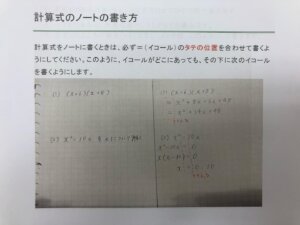 計算式のノートの書き方
計算式をノートに書くときは、必ず＝（イコール）のタテの位置を合わせて書くよ
うにしてください。このように、イコールがどこにあっても、その下に次のイコール
を書くようにします。
(1) (x+6)(x+8)
(2) x²=10x
(1) (x+6)(x+8)
= x²+8x+6x+48
= x²+14x+48
(2) x²=10x
x²-10x=0
x(x-10)=0
x=0,10